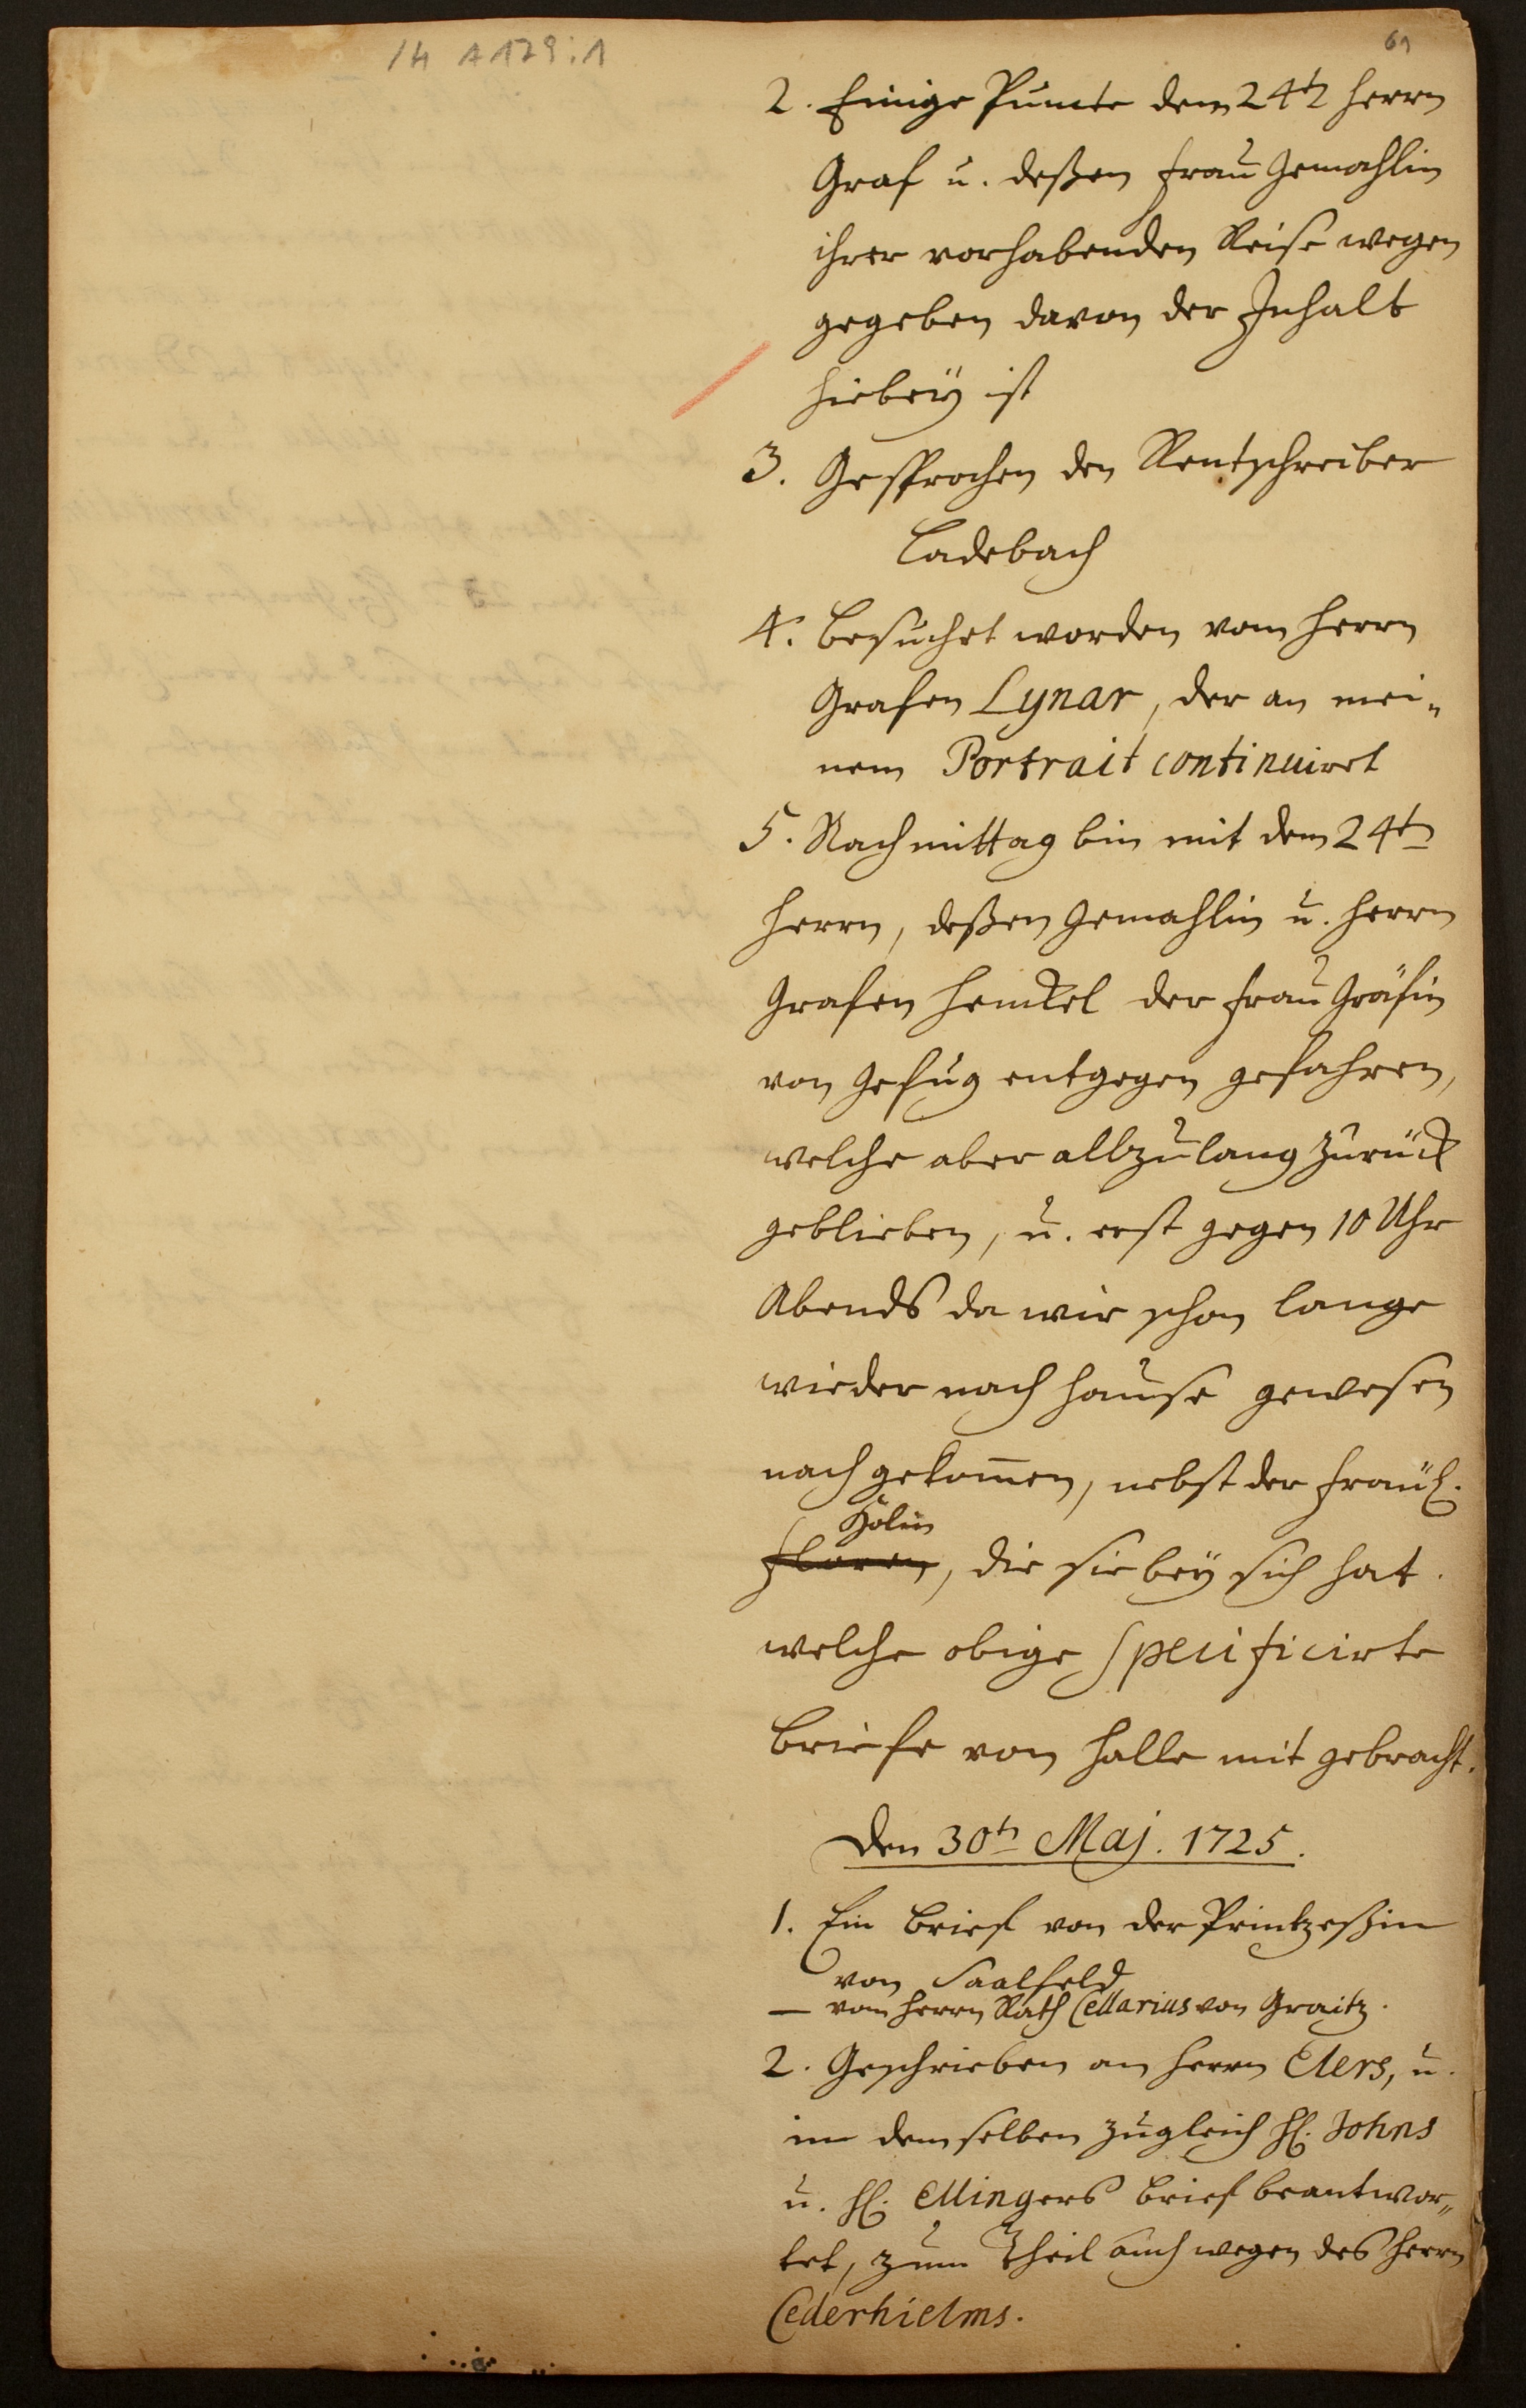 /H A 179:1
61
2. Einige Puncte dem 24t. Herrn
Graf u. deßen Frau Gemahlin
ihrer vorhabenden Reise wegen
gegeben davon der Inhalt
hiebeÿ ist
3. Gesprochen den Rentschreiber
Ladebach
4. Besuchet worden vom Herrn
Grafen Lynar, der an mei„
nem Portrait continuiret
5. Nachmittag bin mit dem 24t.
Herrn, deßen Gemahlin u. Herrn
Grafen Henckel der Frau Gräfin
von Gefug entgegen gefahren,
welche aber allzulang zurück
geblieben, u. erst gegen 10 Uhr
Abends da wir schon lange
wieder nach Hause gewesen
nach gekom̅en, nebst der Fräul.
, die sie beÿ sich hat.
welche obige specificirte
Briefe von Halle mit gebracht.
Den 30t. Maj. 1725.
1. Ein Brief von der Printzeßin
von Saalfeld
— vom Herrn Rath Cellarius von Graitz.
2. Geschrieben an Herrn Elers, u.
in demselben zugleich H. Johns
u. H. Mingers Brief beantwor„
tet, zum Theil auch wegen des Herrn
Cederhielms.